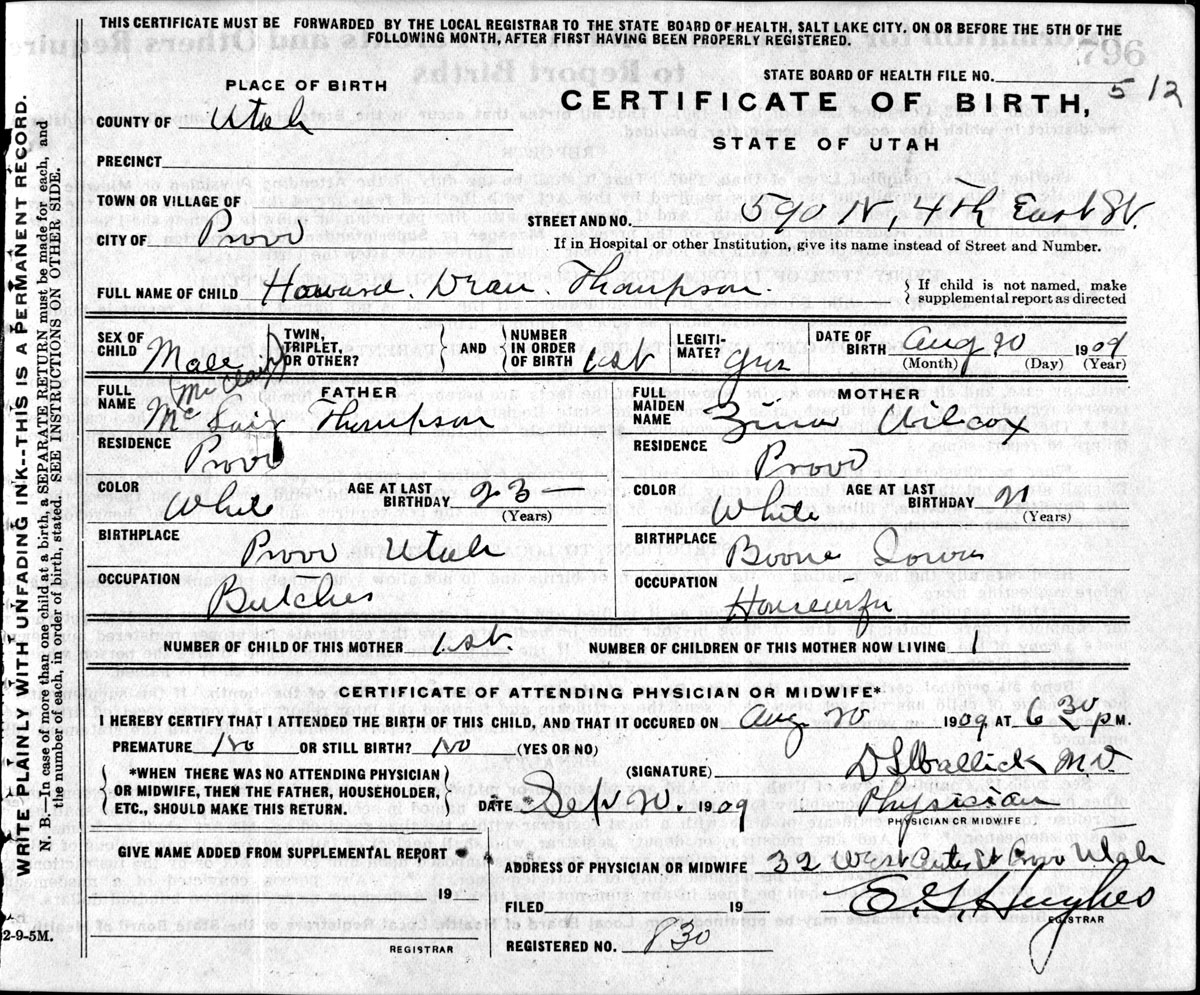 THIS CERTIFICATE MUST BE FORWARDED BY THE LOCAL REGISTRAR TO THE STATE BOARD OF HEALTH, SALT LAKE CITY, ON OR BEFORE THE 5TH OF THE
FOLLOWING MONTH, AFTER FIRST HAVING BEEN PROPERLY REGISTERED.
STATE BOARD OF HEALTH FILE NO. 512
PLACE OF BIRTH
CERTIFICATE OF BIRTH,
STATE OF UTAH
COUNTY OF Utah
PRECINCT
TOWN OR VILLAGE OF
CITY OF Provo
STREET AND NO. 590 N 4th East St.
If in Hospital or other Institution, give its name instead of Street and Number.
FULL NAME OF CHILD Howard Dean Thompson.
{ If child is not named, make
supplemental report as directed
SEX OF CHILD Male
TWIN, TRIPLET, OR OTHER? } AND { NUMBER IN ORDER OF BIRTH 1st
LEGITIMATE? yes
DATE OF BIRTH Aug 20 1909
(Month) (Day) (Year)
FATHER
FULL NAME Mc Lair Thompson
RESIDENCE Provo
COLOR White
AGE AT LAST BIRTHDAY 23
(Years)
BIRTHPLACE Provo Utah
OCCUPATION Butcher
MOTHER
FULL MAIDEN NAME Wilcox
RESIDENCE Provo
COLOR White
AGE AT LAST BIRTHDAY 21
(Years)
BIRTHPLACE Boone Iowa
OCCUPATION Housewife
NUMBER OF CHILD OF THIS MOTHER 1st.
NUMBER OF CHILDREN OF THIS MOTHER NOW LIVING 1
CERTIFICATE OF ATTENDING PHYSICIAN OR MIDWIFE*
I HEREBY CERTIFY THAT I ATTENDED THE BIRTH OF THIS CHILD, AND THAT IT OCCURED ON Aug 20 1909 AT 6 30 P M.
PREMATURE No OR STILL BIRTH? No (YES OR NO)
{ *WHEN THERE WAS NO ATTENDING PHYSICIAN
OR MIDWIFE, THEN THE FATHER, HOUSEHOLDER,
ETC., SHOULD MAKE THIS RETURN. }
(SIGNATURE) M D
DATE Sept 1909
Physician
PHYSICIAN OR MIDWIFE
GIVE NAME ADDED FROM SUPPLEMENTAL REPORT
19
REGISTRAR
ADDRESS OF PHYSICIAN OR MIDWIFE 32 West Center St Provo Utah
FILED 19 E. G. Hughes
REGISTRAR
REGISTERED NO. 830
WRITE PLAINLY WITH UNFADING INK--THIS IS A PERMANENT RECORD.
N. B.—In case of more than one child at a birth, a SEPARATE RETURN must be made for each, and
the number of each, in order of birth, stated. SEE INSTRUCTIONS ON OTHER SIDE.
2-9-5M.